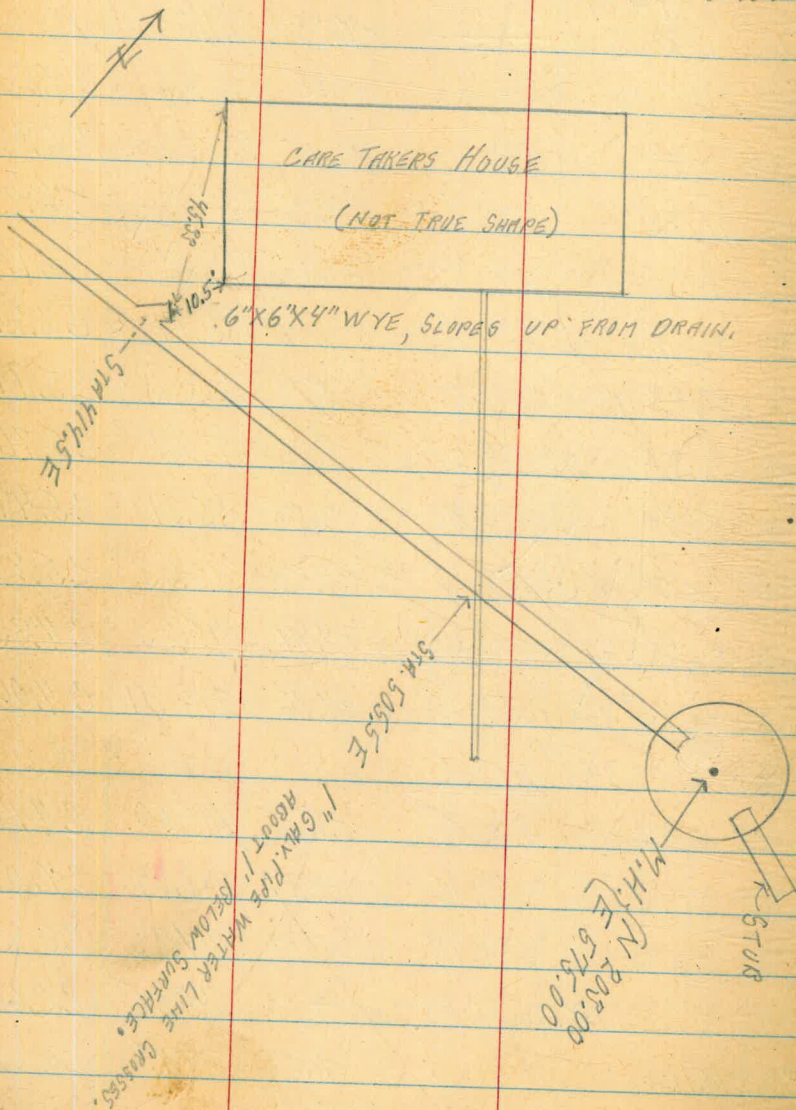 N
CARE TAKERS HOUSE
(NOT TRUE SHAPE)
10.5'
6"X6"X4" WYE, SLOPES UP FROM DRAIN.
STA 414.5 E
STA. 505.5 E
1" GALV. PIPE WATER LINE CROSSES.
ABOUT 1' BELOW SURFACE.
M.H. (N 205.00
(E 575.00
STUB